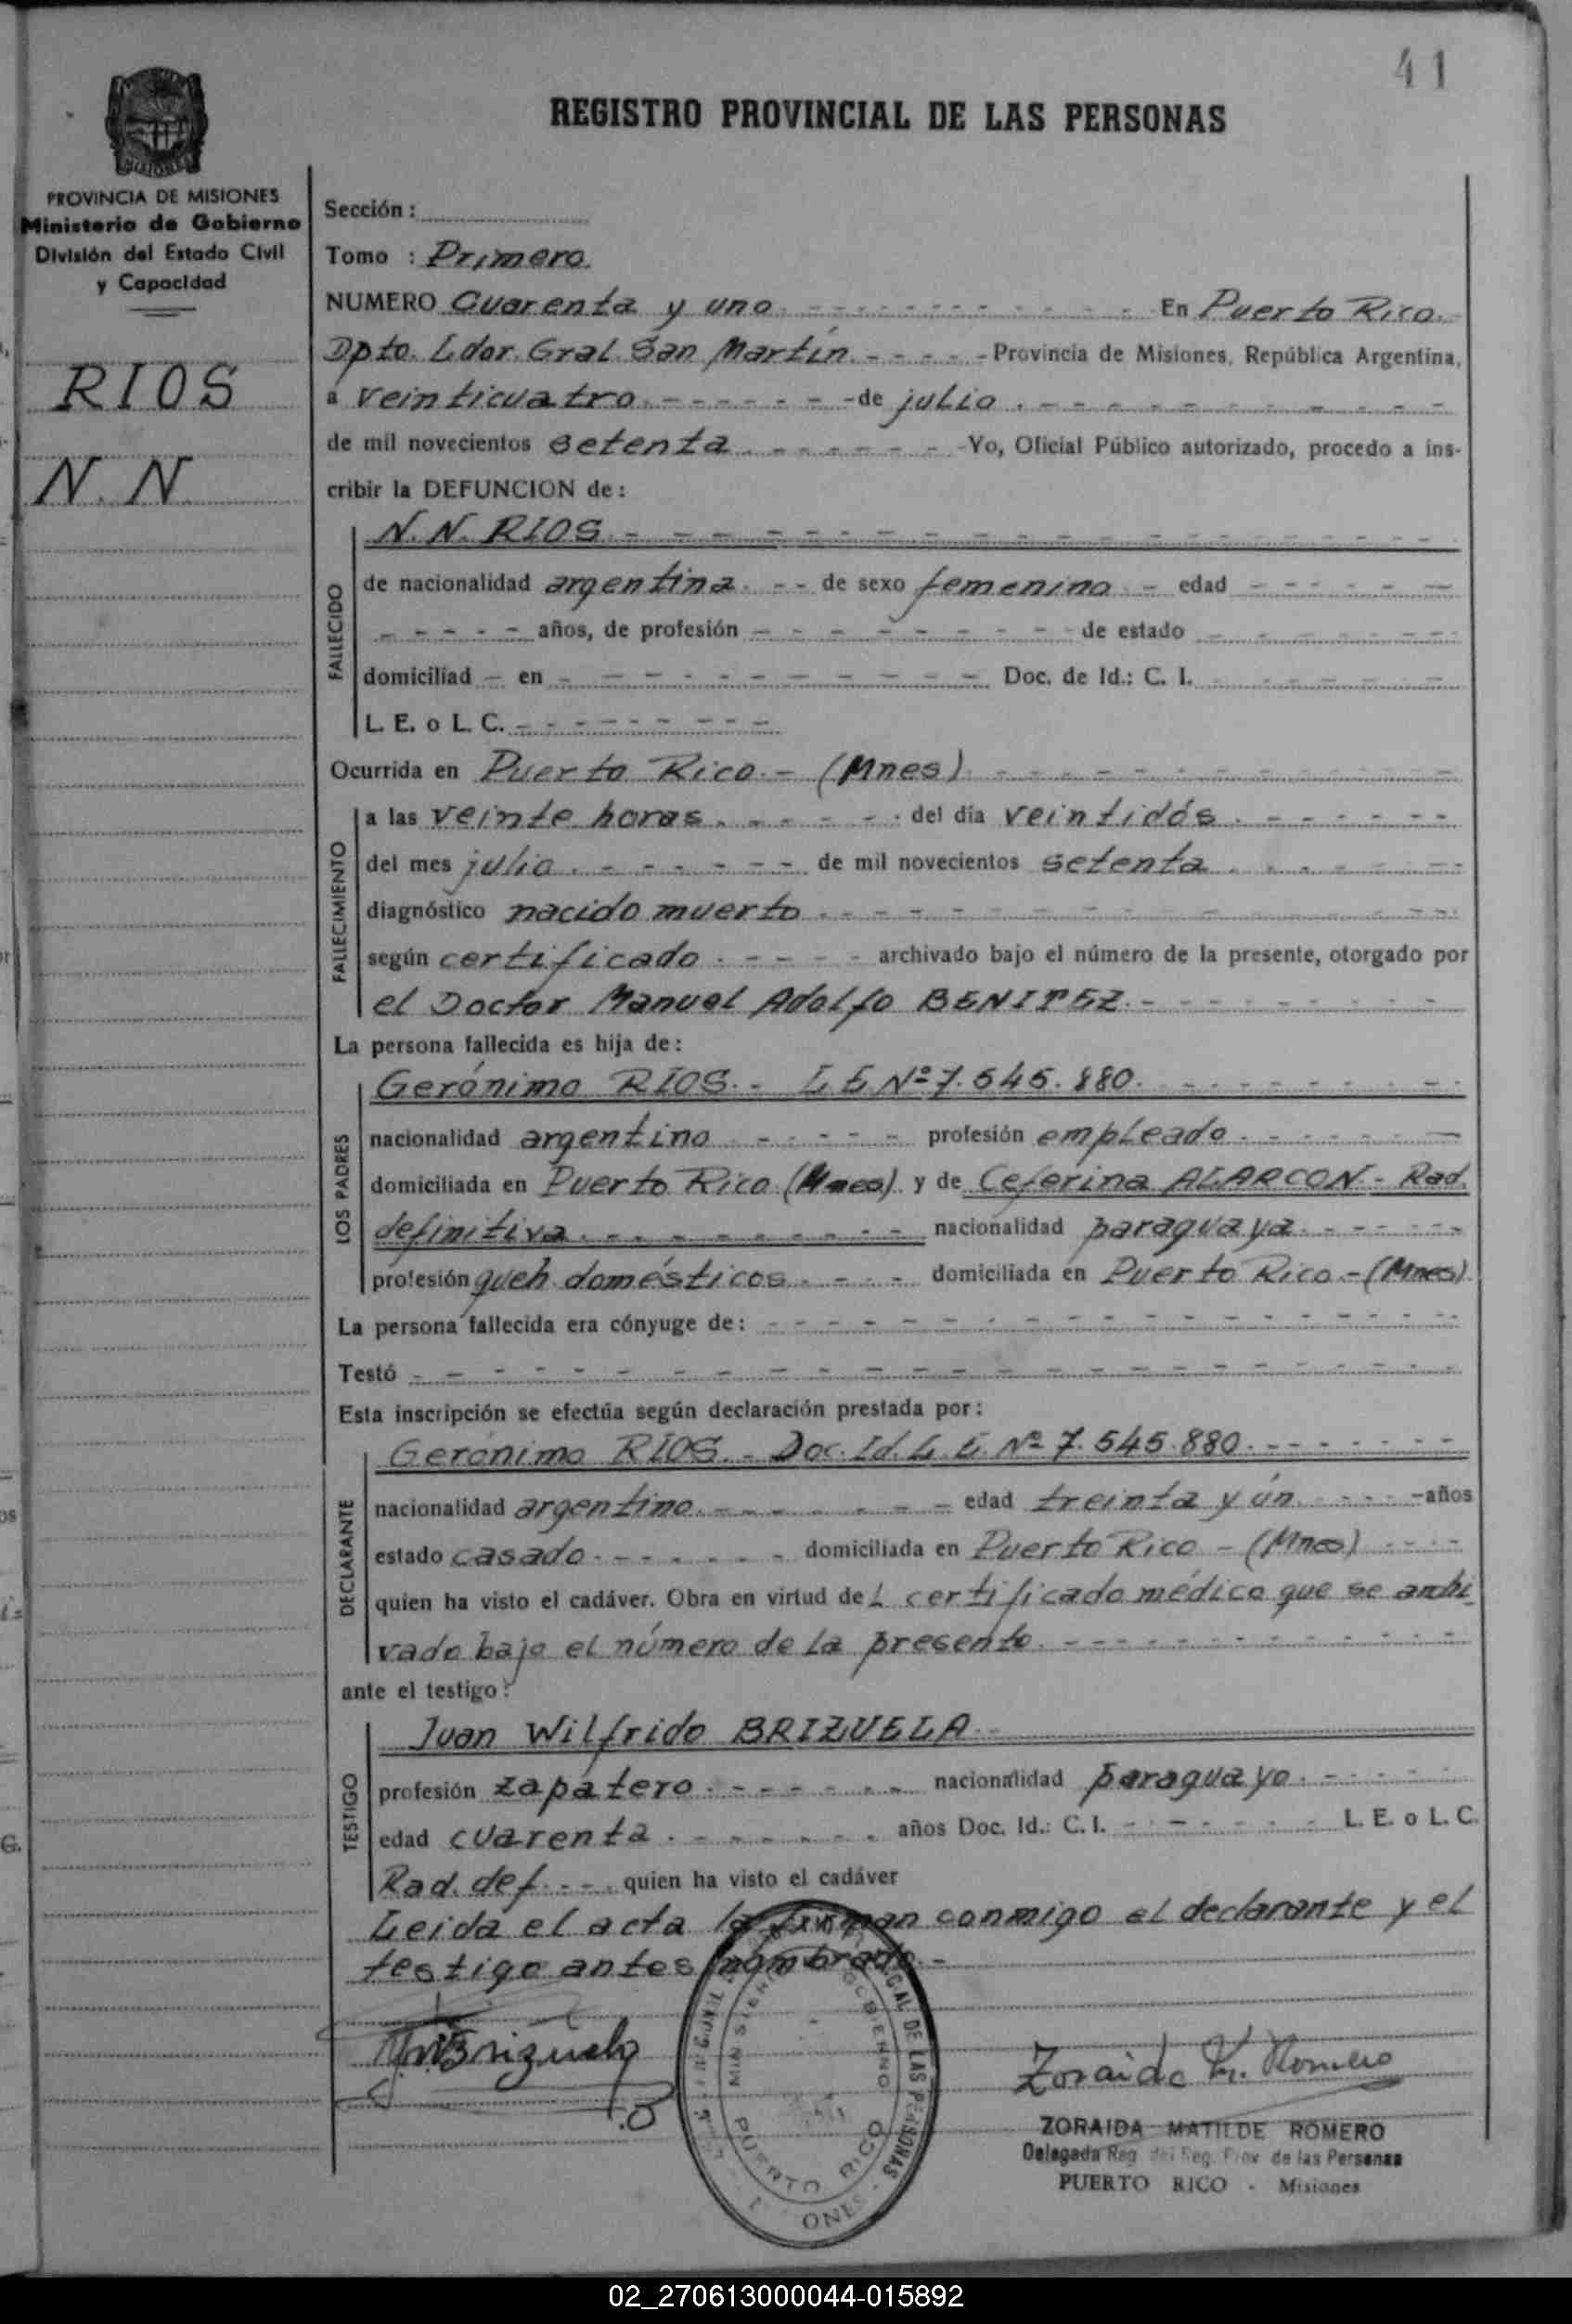 41
REGISTRO PROVINCIAL DE LAS PERSONAS
MISIONES
PROVINCIA DE MISIONES
Ministerio de Gobierno
División del Estado Civil
y Capacidad
RIOS
N. N
Sección :
Tomo : Primero
NUMERO Cuarenta y uno - - - En Puerto Rico.
Dpto. Ldor. Gral. San Martín. - - - Provincia de Misiones, República Argentina,
a veinticuatro. - - - de julio. - - -
de mil novecientos setenta. - - - Yo, Oficial Público autorizado, procedo a ins-
cribir la DEFUNCION de :
FALLECIDO
N. N. RIOS. - - -
de nacionalidad argentina. - - de sexo femenino - edad - - -
- - - años, de profesión - - - de estado - - -
domiciliad - en - - - Doc. de Id.: C. I. - - -
L. E. o L. C. - - -
Ocurrida en Puerto Rico. - (Mnes) - - -
FALLECIMIENTO
a las veinte horas. - - - del día veintidós. - - -
del mes julio. - - - de mil novecientos setenta. - - -
diagnóstico nacido muerto. - - -
según certificado. - - - archivado bajo el número de la presente, otorgado por
el Doctor Manuel Adolfo BENITEZ. - - -
La persona fallecida es hija de :
LOS PADRES
Gerónimo RIOS. - L E Nº 7.545.880. - - -
nacionalidad argentino - - - profesión empleado. - - -
domiciliada en Puerto Rico (Mnes). y de Ceferina ALARCON. - Rad.
definitiva. - - - nacionalidad paraguaya. - - -
profesión queh. domésticos. - - - domiciliada en Puerto Rico. - (Mnes).
La persona fallecida era cónyuge de : - - -
Testó - - -
Esta inscripción se efectúa según declaración prestada por :
DECLARANTE
Gerónimo RIOS. - Doc. Id. L. E. Nº 7.545.880. - - -
nacionalidad argentino. - - - edad treinta y ún. - - - años
estado casado. - - - domiciliada en Puerto Rico - (Mnes) - - -
quien ha visto el cadáver. Obra en virtud del certificado médico que se archi
vado bajo el número de la presente. - - -
ante el testigo :
TESTIGO
Juan Wilfrido BRIZUELA. -
profesión zapatero. - - - nacionalidad paraguayo. - - -
edad cuarenta. - - - años Doc. Id.: C. I. - - - L. E. o L. C.
Rad. def. - - - quien ha visto el cadáver
Leida el acta la firman conmigo el declarante y el
testigo antes nombrado. -
Brizuela
DE LAS PERSONAS
PUERTO RICO
Zoraida M. Romero
ZORAIDA MATILDE ROMERO
Delegada Reg. del Reg. Prov. de las Personas
PUERTO RICO - Misiones
02_270613000044-015892